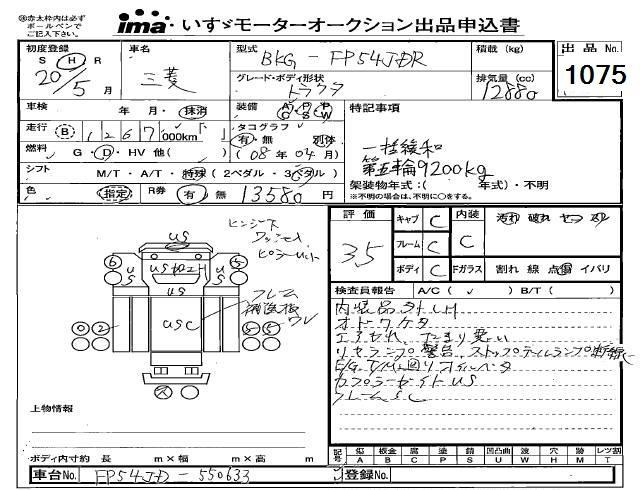 ㊟赤太枠内は必ず
ボールペンで
ご記入下さい。
ima・いすゞモーターオークション出品申込書
初度登録 車名 型式 積載 (kg) 出品No.
S H R 三菱 BKG - FP54JDR 1075
20/5 月 グレード・ボディ形状 排気量 (cc)
トラクタ 12880
車検 年 月・抹消 装備 AC PS PW 特記事項
走行 B 1267,000km タコグラフ 有・無 別体 一括緩和
燃料 G・D・HV 他( ) (08年04月) 第五輪9200kg
シフト M/T・A/T・特殊(2ペダル・3ペダル) 架装物年式:( 年式)・不明
色 指定 R券 有 無 13580円 ※不明の場合は、不明に○をする。
評価 キャブ C 内装 汚れ 破れ ヤコゲ スレ
3.5 フレーム C C
ボディ C Fガラス 割れ 線 点傷 イバリ
検査員報告 A/C(✓) B/T( )
内装品外し
オドワケタ
リセランプ警告 ストップテイルランプ断線
カプラーサイトUS
フレームSC
US
US
US
USC
フレーム
上物情報
ボディ内寸約 長 m×幅 m×高 m
記号 傷 板金 腐 塗 錆 凹凸曲 波 穴 跡 レンズ割
A B C P S U W H M T
車台No. FP54JD-550633 登録No.